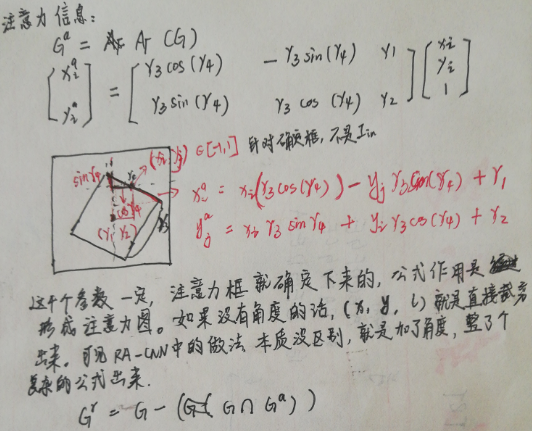 注意力信息:
Gᵃ = Ar (G)
[xᵢᵃ yᵢᵃ] = [γ₃cos(γ₄) -γ₃sin(γ₄) γ₁ γ₃sin(γ₄) γ₃cos(γ₄) γ₂] [xᵢ yᵢ 1]
(xᵢ, yⱼ) ∈[-1,1] 针对确定框,不是Iin
sinγ₄
xᵢᵃ = xᵢ(γ₃cos(γ₄)) - yⱼ γ₃sin(γ₄) + γ₁
(γ₁ γ₂)
yⱼᵃ = xᵢ γ₃ sinγ₄ + yᵢ γ₃cos(γ₄) + γ₂
这个参数一定,注意力框就确定下来的,公式作用是
形成注意力图。如果没有角度的话,(x, y, l)就是直接裁剪
出来。可见RA-CNN中的做法本质没区别,就是加了角度,整了个
复杂的公式出来.
Gʳ = G - (G ∩ Gᵃ)